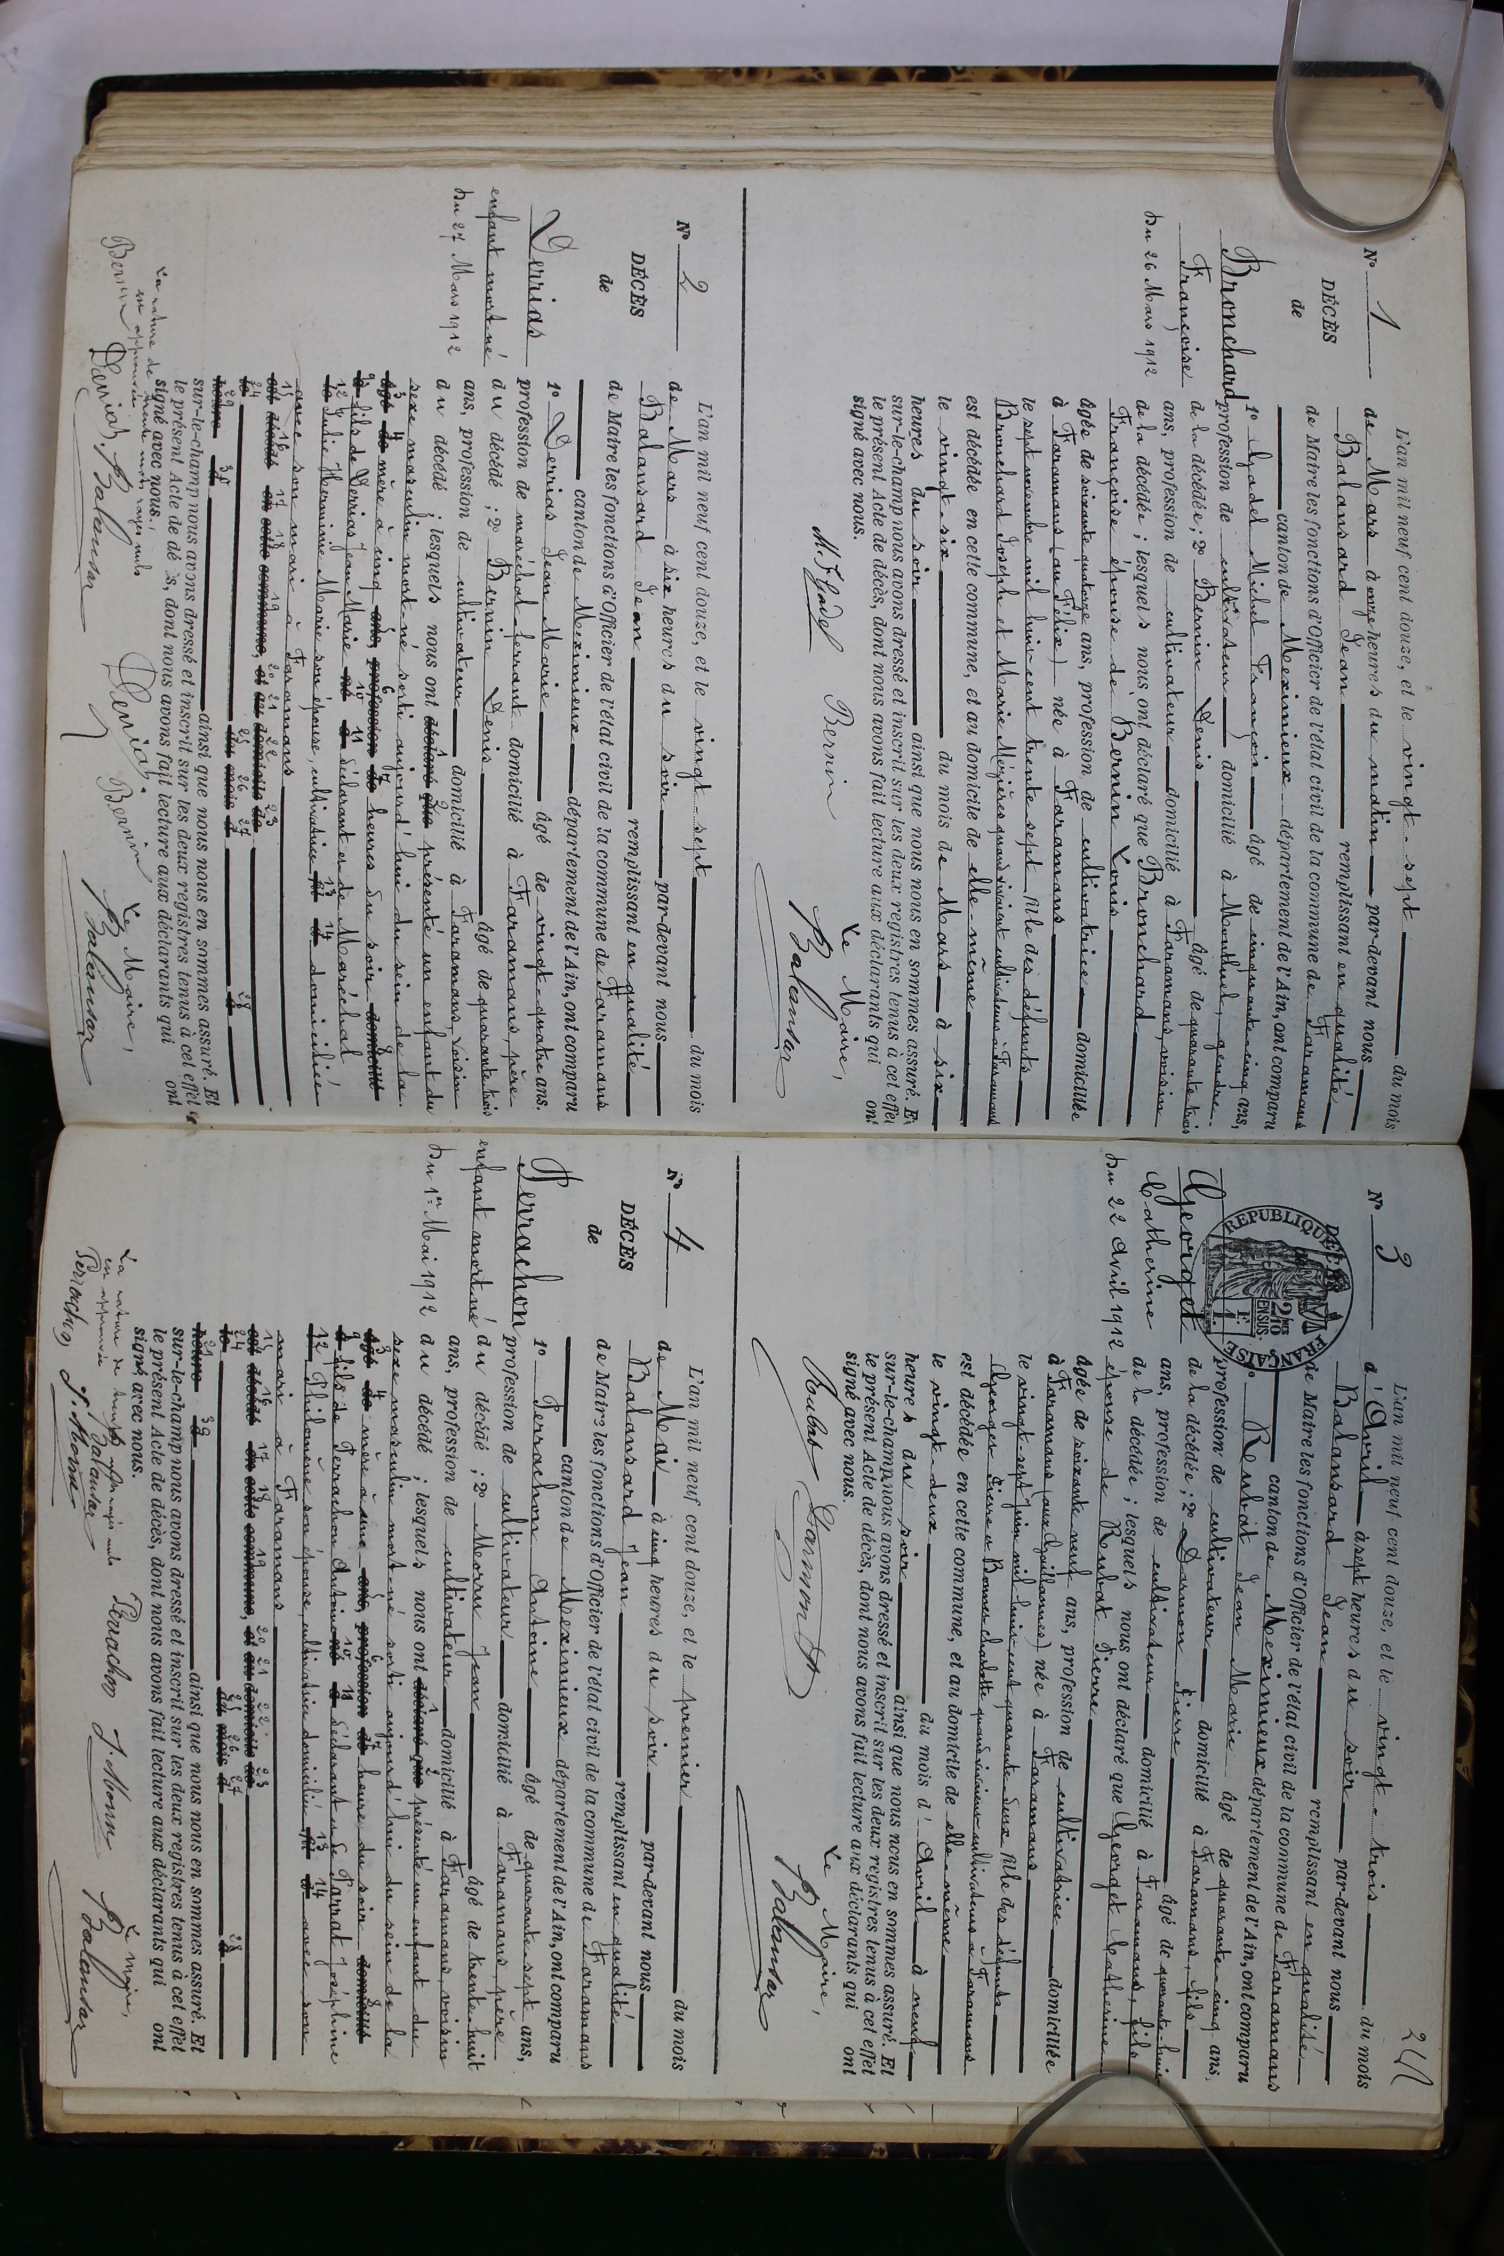 N° 1
DÉCÈS
de
Bronchard
Françoise
Du 26 Mars 1912
L'an mil neuf cent douze, et le vingt-sept du mois
de Mars à onze heures du matin par-devant nous
Balansard Jean remplissant en qualité
de Maire les fonctions d'Officier de l'état civil de la commune de Faramans
canton de Meximieux département de l'Ain, ont comparu
1° Gadel Michel François âgé de cinquante-cinq ans,
profession de cultivateur domicilié à Montluel, gendre
de la décédée; 2° Bernin Denis âgé de quarante trois
ans, profession de cultivateur domicilié à Faramans, voisin
de la décédée; lesquels nous ont déclaré que Bronchard
Françoise épouse de Bernin Louis
âgée de soixante quatorze ans, profession de cultivatrice domiciliée
à Faramans (au Félix) née à Faramans
le sept novembre mil huit-cent trente sept fille des défunts
Bronchard Joseph et Marie Mézières quand vivaient cultivateurs à Faramans
est décédée en cette commune, et au domicile de elle-même
le vingt-six du mois de Mars à six
heures du soir ainsi que nous nous en sommes assuré. Et
sur-le-champ nous avons dressé et inscrit sur les deux registres tenus à cet effet
le présent Acte de décès, dont nous avons fait lecture aux déclarants qui ont
signé avec nous.
Le Maire,
M. F Gadel Bernin Balansar
N° 2
DÉCÈS
de
Derrias
enfant mort-né
Du 27 Mars 1912
L'an mil neuf cent douze, et le vingt-sept du mois
de Mars à six heures du soir par-devant nous
Balansard Jean remplissant en qualité
de Maire les fonctions d'Officier de l'état civil de la commune de Faramans
canton de Meximieux département de l'Ain, ont comparu
1° Derrias Jean Marie âgé de vingt-quatre ans,
profession de maréchal-ferrant domicilié à Faramans, père
du décédé; 2° Bernin Denis âgé de quarante trois
ans, profession de cultivateur domicilié à Faramans, voisin
du décédé; lesquels nous ont déclaré que présenté un enfant du
sexe masculin mort-né sorti aujourd'hui du sein de la
âgé de mère à cinq ans, profession de heures du soir domicilié
à fils de Derrias Jean Marie né à déclarant et de Maréchal
le Julie Hermine Marie son épouse, cultivatrice fil d domiciliée
avec son mari à Faramans
est décédé en cette commune, et au domicile de
le du mois d à
heures d ainsi que nous nous en sommes assuré. Et
sur-le-champ nous avons dressé et inscrit sur les deux registres tenus à cet effet
le présent Acte de décès, dont nous avons fait lecture aux déclarants qui ont
signé avec nous.
La rature de trente mots rayés nuls
en approuvée
Le Maire,
Bernin Derrias Balansar Derrias Bernin Balansar
24
N° 3
DÉCÈS
REPUBLIQUE FRANÇAISE
Georget
Catherine
Du 22 Avril 1912
L'an mil neuf cent douze, et le vingt-trois du mois
d'Avril à sept heures du soir par-devant nous
Balansard Jean remplissant en qualité
de Maire les fonctions d'Officier de l'état civil de la commune de Faramans
canton de Meximieux département de l'Ain, ont comparu
1° Rubat Jean Marie âgé de quarante-cinq ans,
profession de cultivateur domicilié à Faramans, fils
de la décédée; 2° Darmon Pierre âgé de quarante-huit
ans, profession de cultivateur domicilié à Faramans, fils
de la décédée; lesquels nous ont déclaré que Georget Catherine
épouse de Roubat Pierre
âgée de soixante neuf ans, profession de cultivatrice domiciliée
à Faramans (aux Guillaumes) née à Faramans
le vingt-sept Juin mil huit-cent quarante deux fille des défunts
Georget Pierre et Charlotte quand vivaient cultivateurs à Faramans
est décédée en cette commune, et au domicile de elle-même
le vingt-deux du mois d'Avril à neuf
heures du soir ainsi que nous nous en sommes assuré. Et
sur-le-champ nous avons dressé et inscrit sur les deux registres tenus à cet effet
le présent Acte de décès, dont nous avons fait lecture aux déclarants qui ont
signé avec nous.
Le Maire,
Roubat Darmon Balansar
N° 4
DÉCÈS
de
Perrachon
enfant mort né
Du 1er Mai 1912
L'an mil neuf cent douze, et le premier du mois
de Mai à cinq heures du soir par-devant nous
Balansard Jean remplissant en qualité
de Maire les fonctions d'Officier de l'état civil de la commune de Faramans
canton de Meximieux département de l'Ain, ont comparu
1° Perrachon Antoine âgé de quarante sept ans,
profession de cultivateur domicilié à Faramans, père
du décédé; 2° Morrn Jean âgé de trente-huit
ans, profession de cultivateur domicilié à Faramans, voisin
du décédé; lesquels nous ont déclaré que présenté un enfant du
sexe masculin mort-né sorti aujourd'hui du sein de la
âgé de mère à une ans, profession de heure du soir domicilié
à fils de Perrachon Antoine né à déclarant et de Parrat Joséphine
le Philomène son épouse, cultivatrice domiciliée fil d avec son
mari à Faramans
est décédé en cette commune, et au domicile de
le du mois d à
heures d ainsi que nous nous en sommes assuré. Et
sur-le-champ nous avons dressé et inscrit sur les deux registres tenus à cet effet
le présent Acte de décès, dont nous avons fait lecture aux déclarants qui ont
signé avec nous.
La rature de trente mots rayés nuls
en approuvée Balansar
Le Maire,
Perrachon J. Morrn Perrachon J. Morrn Balansar